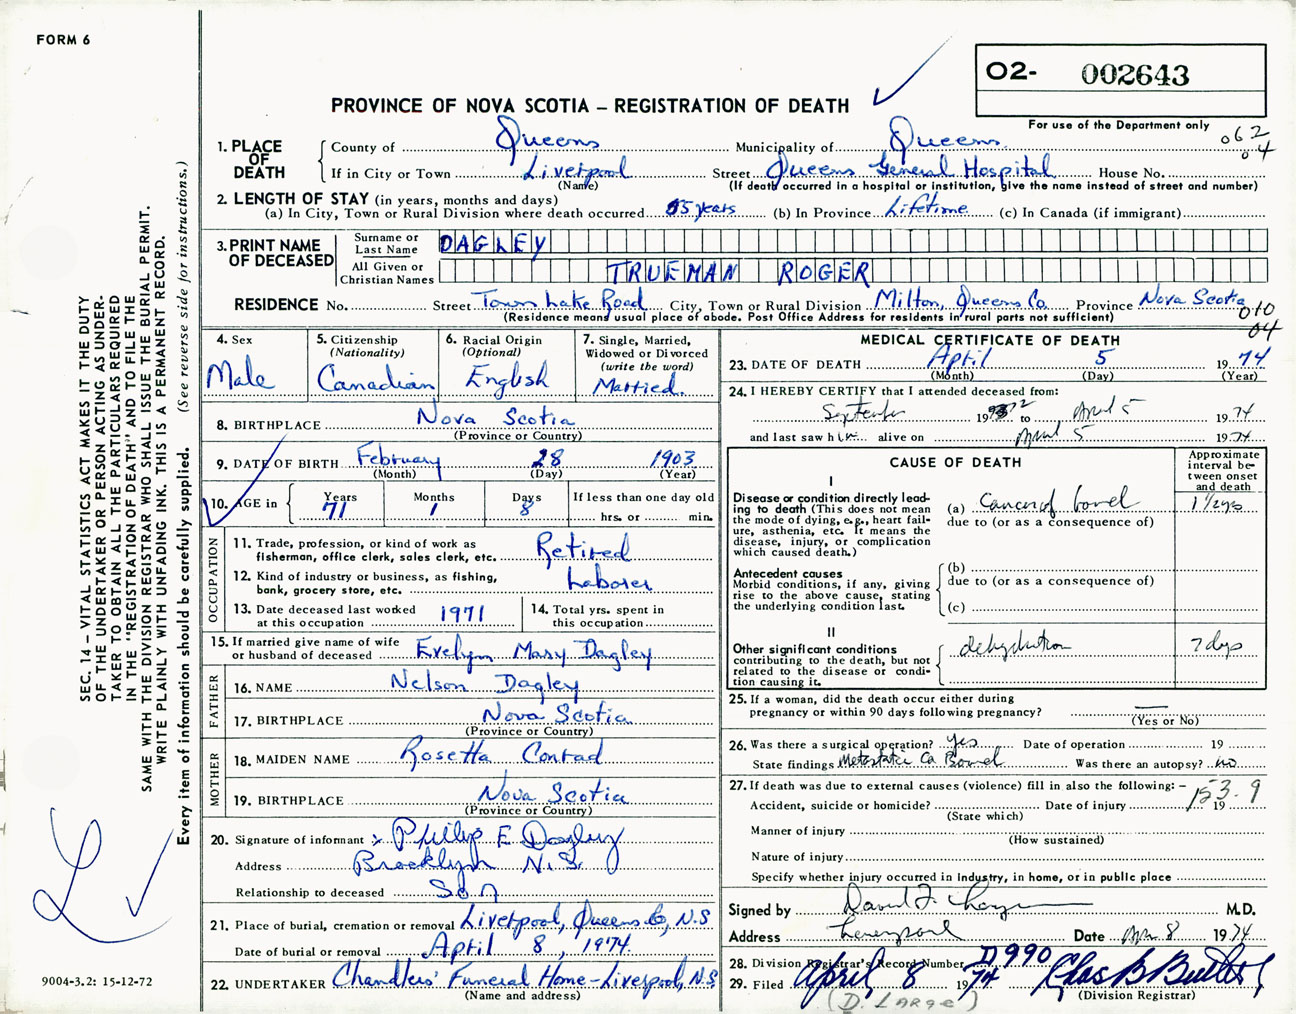 FORM 6
O2- 002643
PROVINCE OF NOVA SCOTIA – REGISTRATION OF DEATH
For use of the Department only
062
04
1. PLACE OF DEATH
County of Queens Municipality of Queens
If in City or Town Liverpool Street Queens General Hospital House No.
(Name) (If death occurred in a hospital or institution, give the name instead of street and number)
2. LENGTH OF STAY (in years, months and days)
(a) In City, Town or Rural Division where death occurred 55 years (b) In Province Lifetime (c) In Canada (if immigrant)
3. PRINT NAME OF DECEASED
Surname or Last Name DAGLEY
All Given or Christian Names TRUEMAN ROGER
RESIDENCE No. Street Town Lake Road City, Town or Rural Division Milton, Queens Co. Province Nova Scotia
(Residence means usual place of abode. Post Office Address for residents in rural parts not sufficient)
010
04
4. Sex
Male
5. Citizenship
(Nationality)
Canadian
6. Racial Origin
(Optional)
English
7. Single, Married,
Widowed or Divorced
(write the word)
Married.
8. BIRTHPLACE Nova Scotia
(Province or Country)
9. DATE OF BIRTH February 28 1903
(Month) (Day) (Year)
10. AGE in
Years Months Days If less than one day old
71 1 8 hrs. or min.
OCCUPATION
11. Trade, profession, or kind of work as
fisherman, office clerk, sales clerk, etc. Retired
12. Kind of industry or business, as fishing,
bank, grocery store, etc. Laborer
13. Date deceased last worked
at this occupation 1971
14. Total yrs. spent in
this occupation
15. If married give name of wife
or husband of deceased Evelyn Mary Dagley
FATHER
16. NAME Nelson Dagley
17. BIRTHPLACE Nova Scotia
(Province or Country)
MOTHER
18. MAIDEN NAME Rosetta Conrad
19. BIRTHPLACE Nova Scotia
(Province or Country)
20. Signature of informant x Philip E Dagley
Address Brooklyn N.S.
Relationship to deceased Son
21. Place of burial, cremation or removal Liverpool, Queens Co, N.S
Date of burial or removal April 8, 1974.
22. UNDERTAKER Chandlers' Funeral Home – Liverpool, N.S
(Name and address)
MEDICAL CERTIFICATE OF DEATH
23. DATE OF DEATH April 5 1974
(Month) (Day) (Year)
24. I HEREBY CERTIFY that I attended deceased from:
September 1972 to April 5 1974
and last saw him alive on April 5 1974
CAUSE OF DEATH
Approximate
interval be-
tween onset
and death
I
Disease or condition directly lead-
ing to death (This does not mean
the mode of dying, e.g., heart fail-
ure, asthenia, etc. It means the
disease, injury, or complication
which caused death.)
(a) Cancer of bowel 1 1/2 yrs
due to (or as a consequence of)
Antecedent causes
Morbid conditions, if any, giving
rise to the above cause, stating
the underlying condition last.
(b)
due to (or as a consequence of)
(c)
II
Other significant conditions
contributing to the death, but not
related to the disease or condi-
tion causing it.
dehydration 7 days
25. If a woman, did the death occur either during
pregnancy or within 90 days following pregnancy? —
(Yes or No)
26. Was there a surgical operation? Yes Date of operation 19
State findings Metastatic Ca Bowel Was there an autopsy? no
27. If death was due to external causes (violence) fill in also the following: –
153.9
Accident, suicide or homicide? Date of injury 19
(State which)
Manner of injury
(How sustained)
Nature of injury
Specify whether injury occurred in industry, in home, or in public place
Signed by David F. M.D.
Address Liverpool Date Apr. 8 1974
28. Division Registrar's Record Number D990
29. Filed April 8 1974 Chas B Butler
(Division Registrar)
(D. LARGE)
SEC. 14 – VITAL STATISTICS ACT MAKES IT THE DUTY
OF THE UNDERTAKER OR PERSON ACTING AS UNDER-
TAKER TO OBTAIN ALL THE PARTICULARS REQUIRED
IN THE "REGISTRATION OF DEATH" AND TO FILE THE
SAME WITH THE DIVISION REGISTRAR WHO SHALL ISSUE THE BURIAL PERMIT.
WRITE PLAINLY WITH UNFADING INK. THIS IS A PERMANENT RECORD.
Every item of information should be carefully supplied. (See reverse side for instructions.)
9004-3.2: 15-12-72